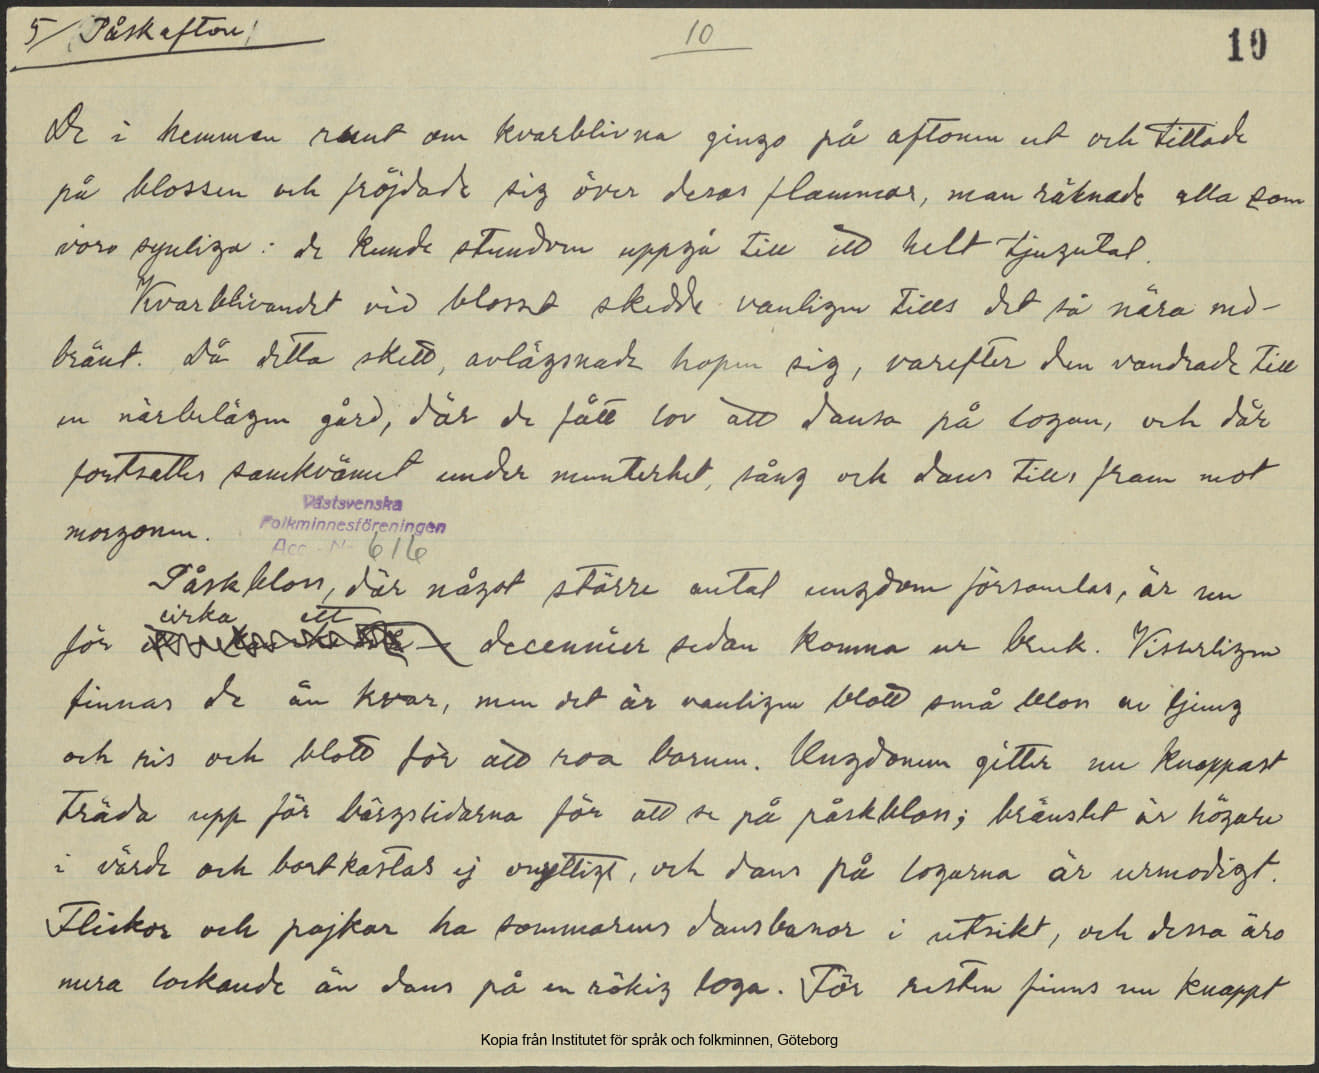 5/ (Påskafton)
10
10
De i hemmen runt om kvarblivna gingo på aftonen ut och tittade
på blossen och fröjdade sig över deras flammor, man räknade alla som
voro synliga: de kunde stundom uppgå till ett helt tjugutal.
Kvarblivandet vid blosset skedde vanligen tills det så nära ned-
bränt. Då detta skett, avlägsnade hopen sig, varefter den vandrade till
en närbelägen gård, där de fått lov att dansa på logen, och där
fortsattes samkvämet under munterhet, sång och dans tills fram mot
morgonen.
Västsvenska
Folkminnesföreningen
Acc - Nr 616
Påskbloss, där något större antal ungdom församlas, är nu
cirka ett
för decennier sedan komna ur bruk. Visserligen
finnas de än kvar, men det är vanligen blott små bloss av ljung
och ris och blott för att roa barnen. Ungdomen gitter nu knappast
träda upp för bärgslidarna för att se på påskbloss; bränslet är högare
i värde och bortkastas ej onyttigt, och dans på logarna är urmodigt.
Flickor och pojkar ha sommarens dansbanor i utsikt, och dessa äro
mera lockande än dans på en rökig loga. För resten finns nu knappt
Kopia från Institutet för språk och folkminnen, Göteborg